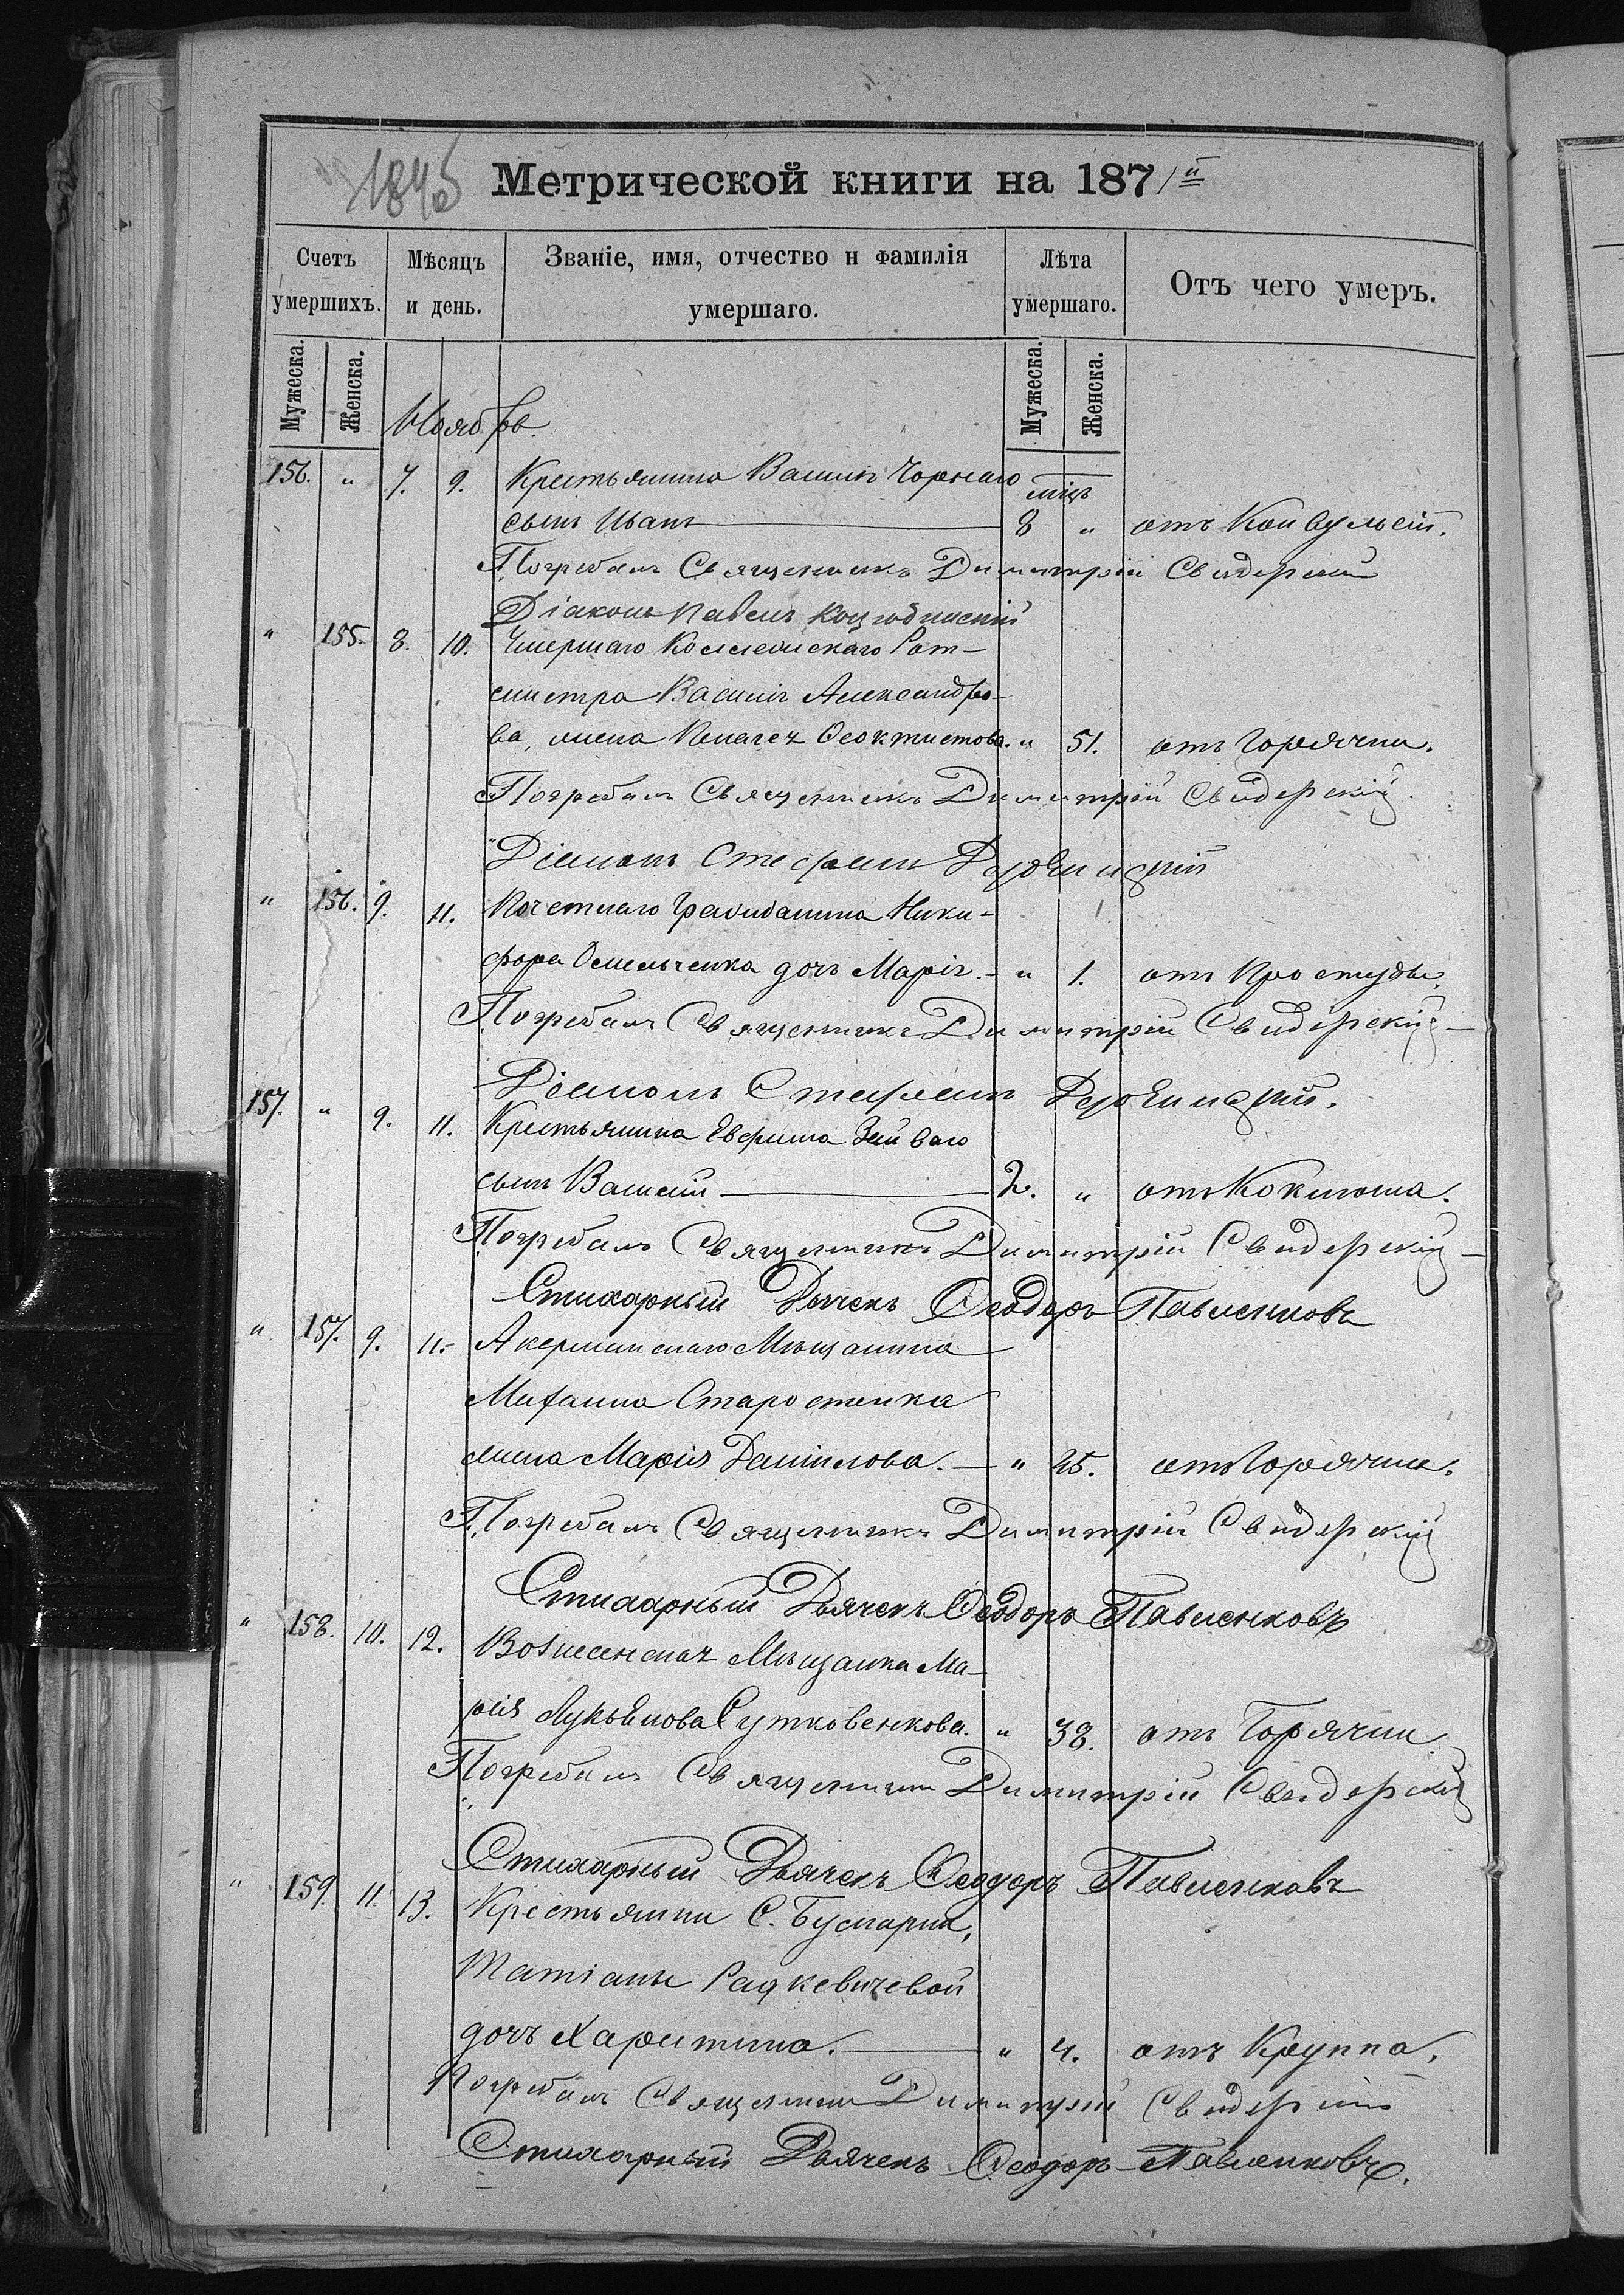 1845
Метрической книги на 1871й
Счетъ умершихъ.
Мѣсяцъ и день.
Званіе, имя, отчество и фамилія умершаго.
Лѣта умершаго.
Отъ чего умеръ.
Мужеска. Женска. Мужеска. Женска.
Ноябрь.
156. " 7. 9. Крестьянина Василія Чорнаго мцъ
сынъ Иванъ 8 " отъ Конвульсій.
Погребалъ Священникъ Димитрій Свидерскій
Діаконъ Павелъ Коцюбинскій
" 155. 8. 10. Умершаго Коллежскаго Рат-
емистра Василія Александро-
ва, жена Пелагея Ѳеоктистова. " 51. отъ Горячки.
Погребалъ Священникъ Димитрій Свидерскій
Діаконъ Стефанъ
" 156. 9. 11. Почетнаго Гражданина Ники-
фора Омельченка дочь Марія. " 1. отъ Простуды.
Погребалъ Священникъ Димитрій Свидерскій
Діаконъ Стефанъ
157. " 9. 11. Крестьянина Евфима
сынъ Василій 2. " отъ Коклюша.
Погребалъ Священникъ Димитрій Свидерскій
Стихарный Дьячекъ Ѳеодоръ Павленковъ
" 157. 9. 11. Акерманскаго Мѣщанина
Михаила Старостенка
жена Марія Данилова. " 25. отъ Горячки.
Погребалъ Священникъ Димитрій Свидерскій
Стихарный Дьячекъ Ѳеодоръ Павленковъ
" 158. 10. 12. Вознесенская Мѣщанка Ма-
рія Лукьянова Сутковенкова. " 38. отъ Горячки
Погребалъ Священникъ Димитрій Свидерскій
Стихарный Дьячекъ Ѳеодоръ Павленковъ
" 159. 11. 13. Крестьянки С.
Татіаны Радкевичевой
дочь Харитина. " 4. отъ Круппа.
Погребалъ Священникъ Димитрій Свидерскій
Стихарный Дьячекъ Ѳеодоръ Павленковъ.